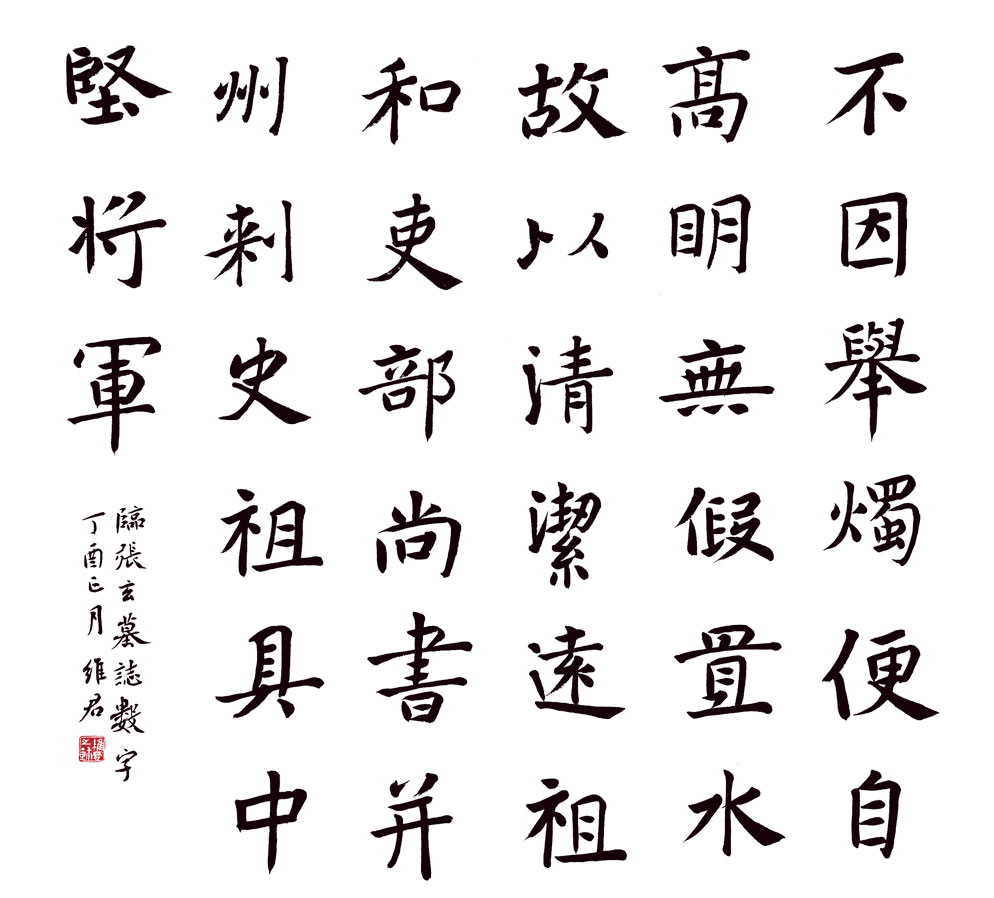 不因舉燭便自
髙明無假置水
故以清潔遠祖
和吏部尚書并
州刺史祖具中
堅將軍
臨張玄墓誌數字
丁酉正月維君